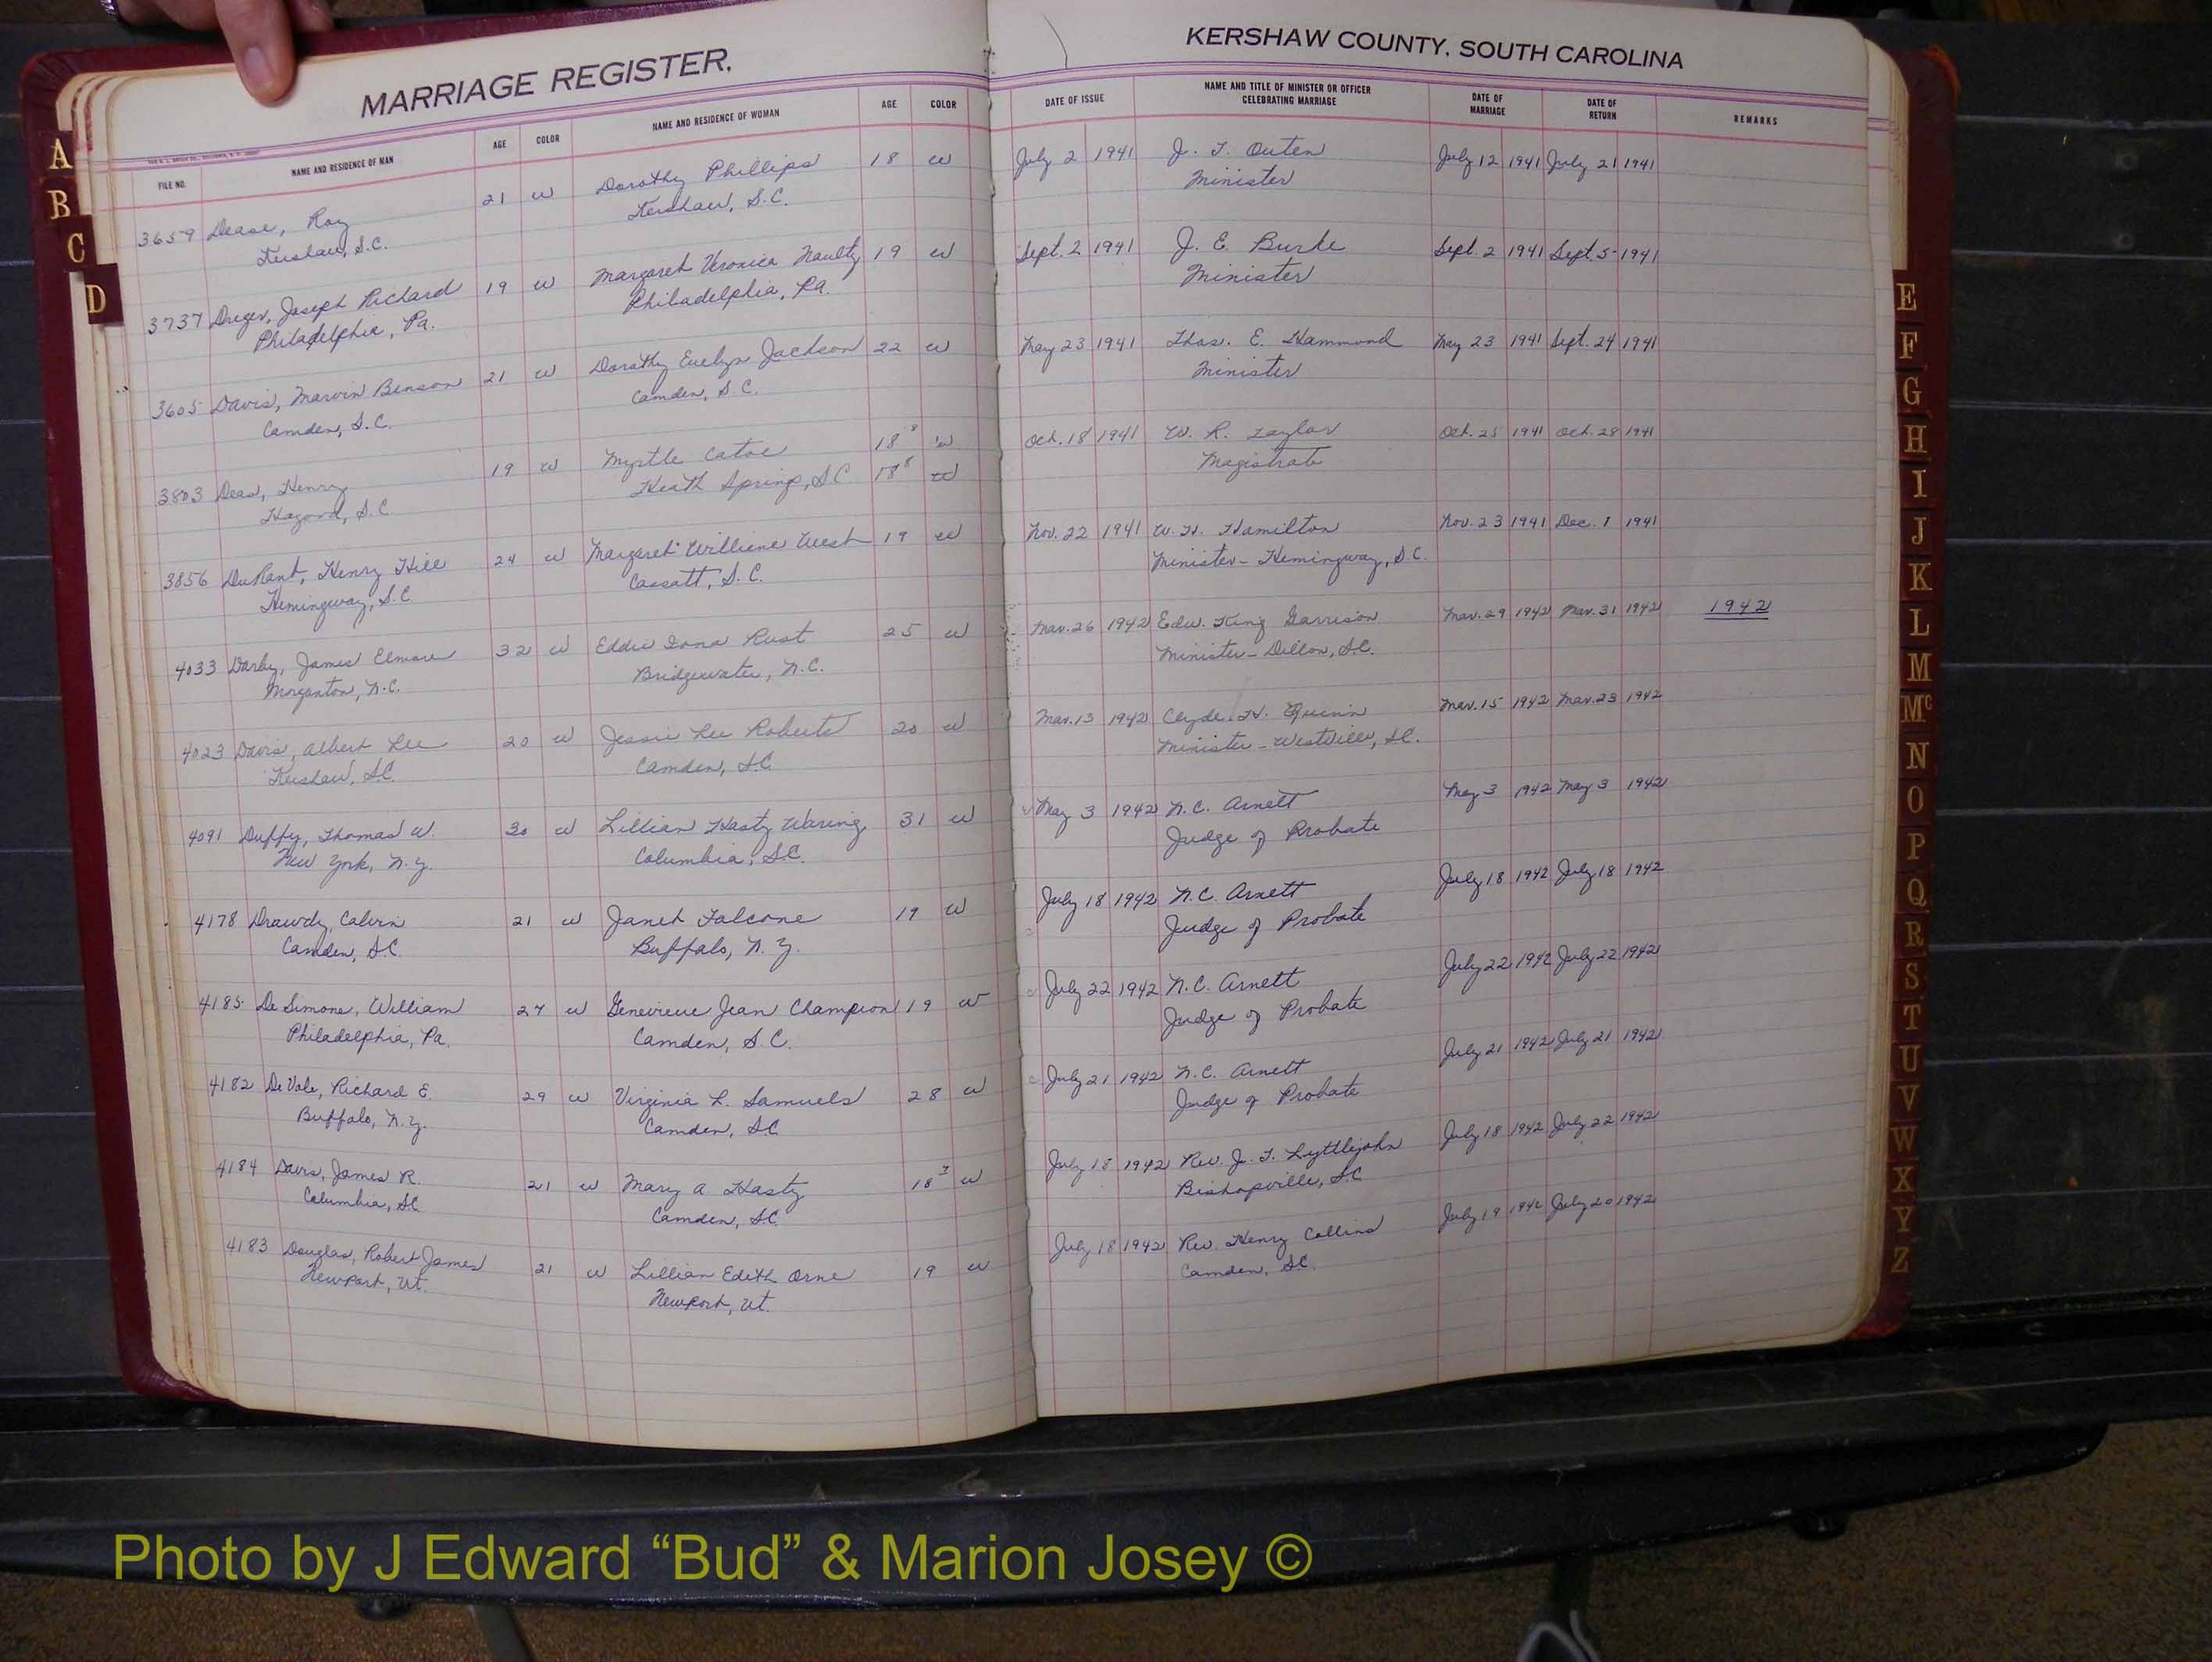 MARRIAGE REGISTER.
KERSHAW COUNTY, SOUTH CAROLINA
FILE NO. NAME AND RESIDENCE OF MAN AGE COLOR NAME AND RESIDENCE OF WOMAN AGE COLOR DATE OF ISSUE NAME AND TITLE OF MINISTER OR OFFICER CELEBRATING MARRIAGE DATE OF MARRIAGE DATE OF RETURN REMARKS
3659 Dease, Roy 21 w Dorothy Phillips 18 w July 2 1941 J. T. Outen July 12 1941 July 21 1941
Kershaw, S.C. Kershaw, S.C. Minister
3737 Dreger, Joseph Richard 19 w Margaret Veronica Naulty 19 w Sept. 2 1941 J. E. Burke Sept. 2 1941 Sept. 5 1941
Philadelphia, Pa. Philadelphia, Pa. Minister
3605 Davis, Marvin Benson 21 w Dorothy Evelyn Jackson 22 w May 23 1941 Thos. E. Hammond May 23 1941 Sept. 24 1941
Camden, S.C. Camden, S.C. Minister
3803 Deas, Henry 19 w Myrtle Catoe 18 w Oct. 18 1941 W. R. Taylor Oct. 25 1941 Oct. 28 1941
S.C. Heath Springs, S.C. 18 w Magistrate
3856 DuRant, Henry Hill 24 w Margaret Williene West 19 w Nov. 22 1941 W. H. Hamilton Nov. 23 1941 Dec. 1 1941
Hemingway, S.C. Cassatt, S.C. Minister - Hemingway, S.C.
4033 Darby, James Elmore 32 w Eddie Iona Rust 25 w Mar. 26 1942 Edw. King Garrison Mar. 29 1942 Mar. 31 1942 1942
Morganton, N.C. Bridgewater, N.C. Minister - Dillon, S.C.
4023 Davis, Albert Lee 20 w Jessie Lee Roberts 20 w Mar. 13 1942 Clyde H. Quinn Mar. 15 1942 Mar. 23 1942
Kershaw, S.C. Camden, S.C. Minister - Westville, S.C.
4091 Duffy, Thomas W. 30 w Lillian Hasty Waring 31 w May 3 1942 N.C. Arnett May 3 1942 May 3 1942
New York, N.Y. Columbia, S.C. Judge of Probate
4178 Drawdy, Calvin 21 w Janet Falcone 19 w July 18 1942 N.C. Arnett July 18 1942 July 18 1942
Camden, S.C. Buffalo, N.Y. Judge of Probate
4185 De Simone, William 27 w Genevieve Jean Champion 19 w July 22 1942 N.C. Arnett July 22 1942 July 22 1942
Philadelphia, Pa. Camden, S.C. Judge of Probate
4182 De Vale, Richard E. 29 w Virginia L. Samuels 28 w July 21 1942 N.C. Arnett July 21 1942 July 21 1942
Buffalo, N.Y. Camden, S.C. Judge of Probate
4184 Davis, James R. 21 w Mary A. Hasty 18 w July 18 1942 Rev. J. T. Lyttlejohn July 18 1942 July 22 1942
Columbia, S.C. Camden, S.C. Bishopville, S.C.
4183 Douglas, Robert James 21 w Lillian Edith Orne 19 w July 18 1942 Rev. Henry Collins July 19 1942 July 20 1942
Newport, Vt. Newport, Vt. Camden, S.C.
A
B
C
D
E
F
G
H
I
J
K
L
M
Mc
N
O
P
Q
R
S
T
U
V
W
X
Y
Z
Photo by J Edward “Bud” & Marion Josey ©